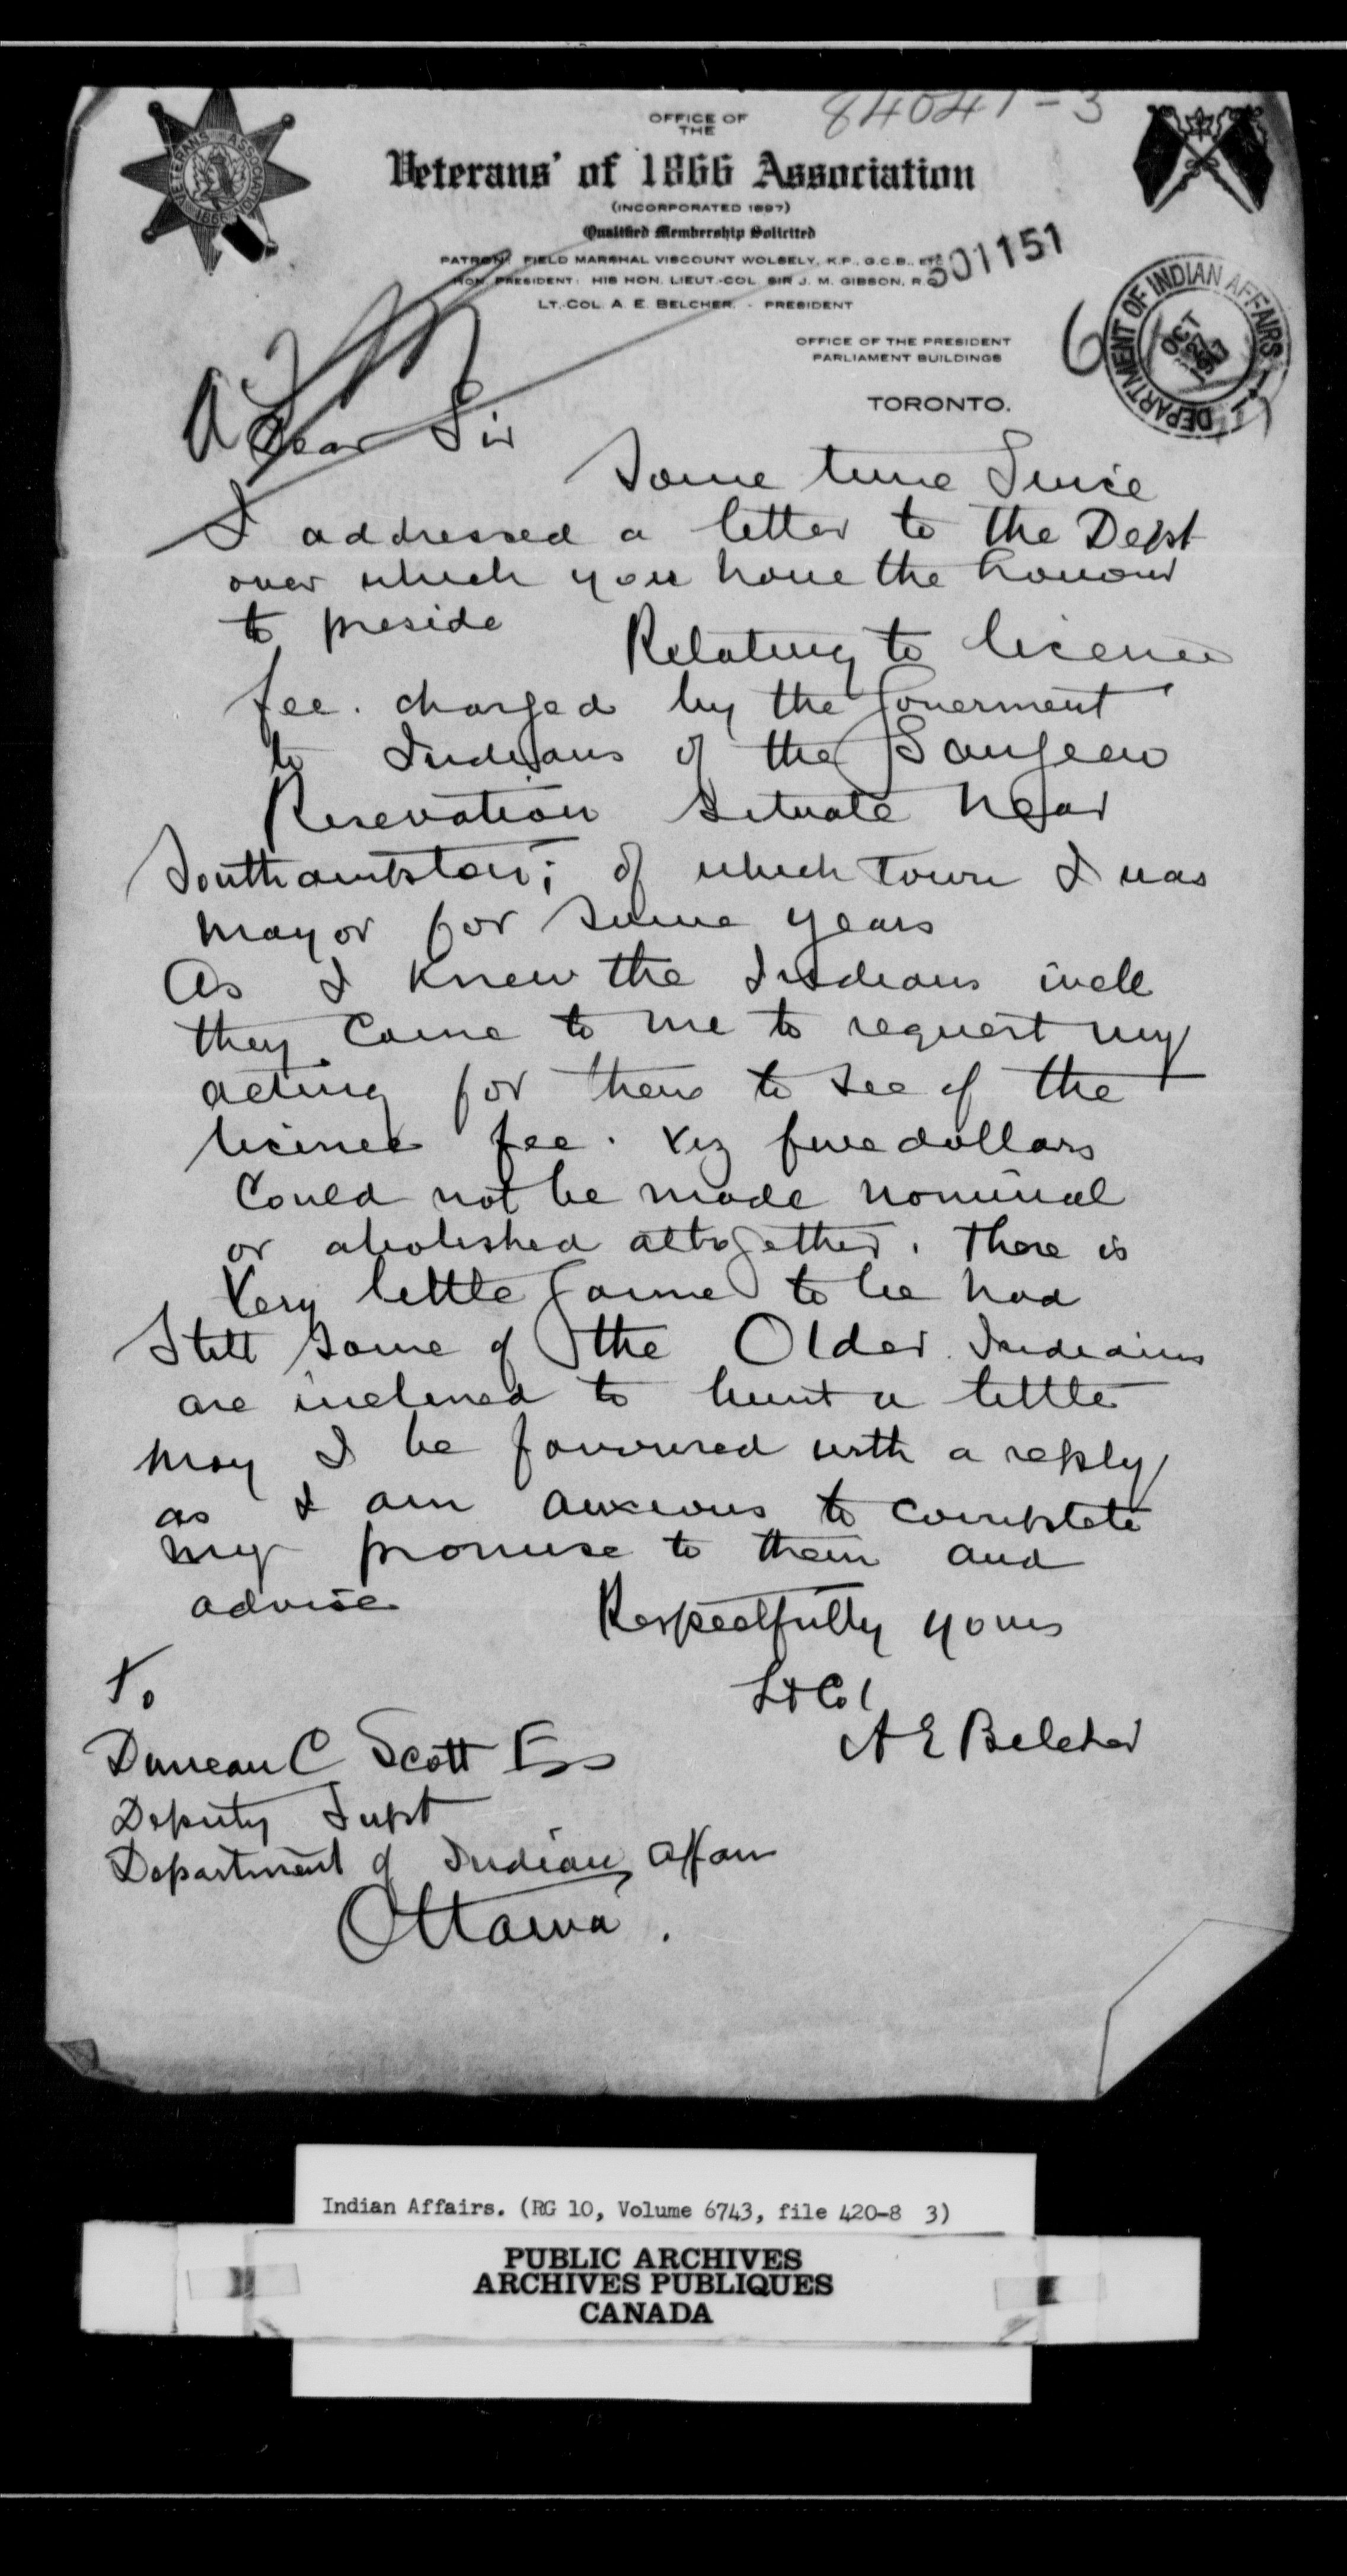 84047-3
OFFICE OF
THE
Veterans' of 1866 Association
(INCORPORATED 1897)
Qualified Membership Solicited
PATRON: FIELD MARSHAL VISCOUNT WOLSELY, K.P., G.C.B., ETC.
HON. PRESIDENT: HIS HON. LIEUT.-COL. SIR J. M. GIBSON, R.O.
LT.-COL. A. E. BELCHER, - PRESIDENT
501151
VETERANS ASSOCIATION
1866
OFFICE OF THE PRESIDENT
PARLIAMENT BUILDINGS
TORONTO.
6
DEPARTMENT OF INDIAN AFFAIRS
OCT
Dear Sir
Some time Since
I addressed a letter to the Dept
over which you have the honour
to preside
Relating to licence
fee. charged by the Goverment
to Indians of the Saugeen
Resevation Situate near
Southampton; of which Town I was
mayor for some years
As I knew the Indians well
they came to me to request my
acting for them to see if the
licence fee. Viz five dollars
Could not be made nominal
or abolished altogether. There is
Very little Game to be had
Still some of the Older Indians
are inclined to hunt a little
may I be favoured with a reply
as I am anxious to complete
my promise to them and
advise
Respectfully yours
Lt Col
A E Belcher
To
Duncan C Scott Esq
Deputy Supt
Department of Indian Affairs
Ottawa.
Indian Affairs. (RG 10, Volume 6743, file 420-8 3)
PUBLIC ARCHIVES
ARCHIVES PUBLIQUES
CANADA